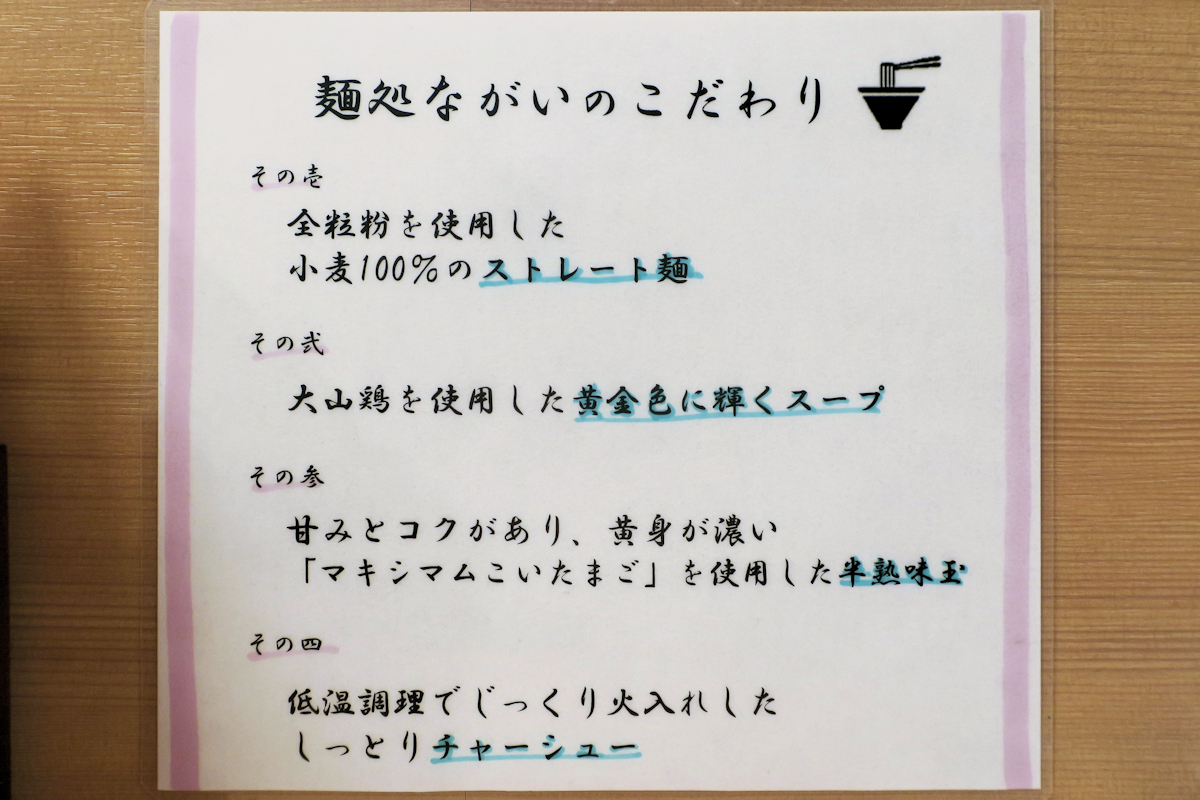 麺処ながいのこだわり
その壱
全粒粉を使用した
小麦100%のストレート麺
その弐
大山鶏を使用した黄金色に輝くスープ
その参
甘みとコクがあり、黄身が濃い
「マキシマムこいたまご」を使用した半熟味玉
その四
低温調理でじっくり火入れした
しっとりチャーシュー